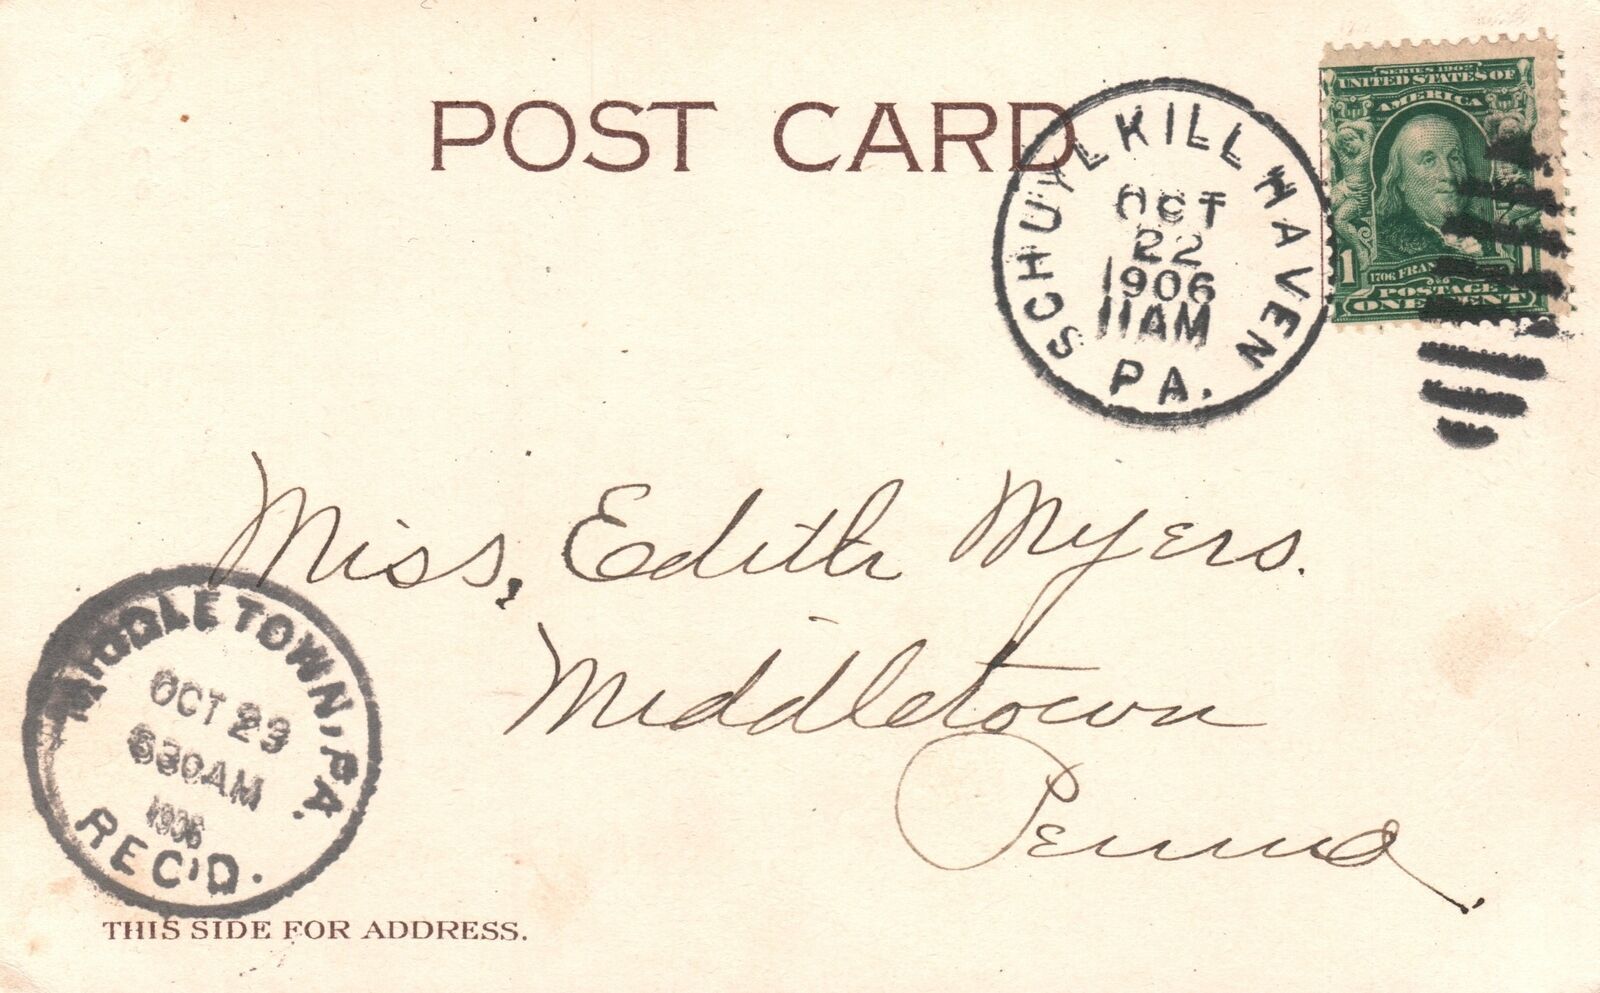 POST CARD
SERIES 1902
UNITED STATES OF
AMERICA
1706 FRAN
POSTAGE
ONE CENT
1 1
SCHUYLKILL HAVEN
OCT
22
1906
11AM
PA.
Miss, Edith Myers.
Middletown
Penna.
MIDDLETOWN, PA.
OCT 23
630AM
1906
REC'D.
THIS SIDE FOR ADDRESS.